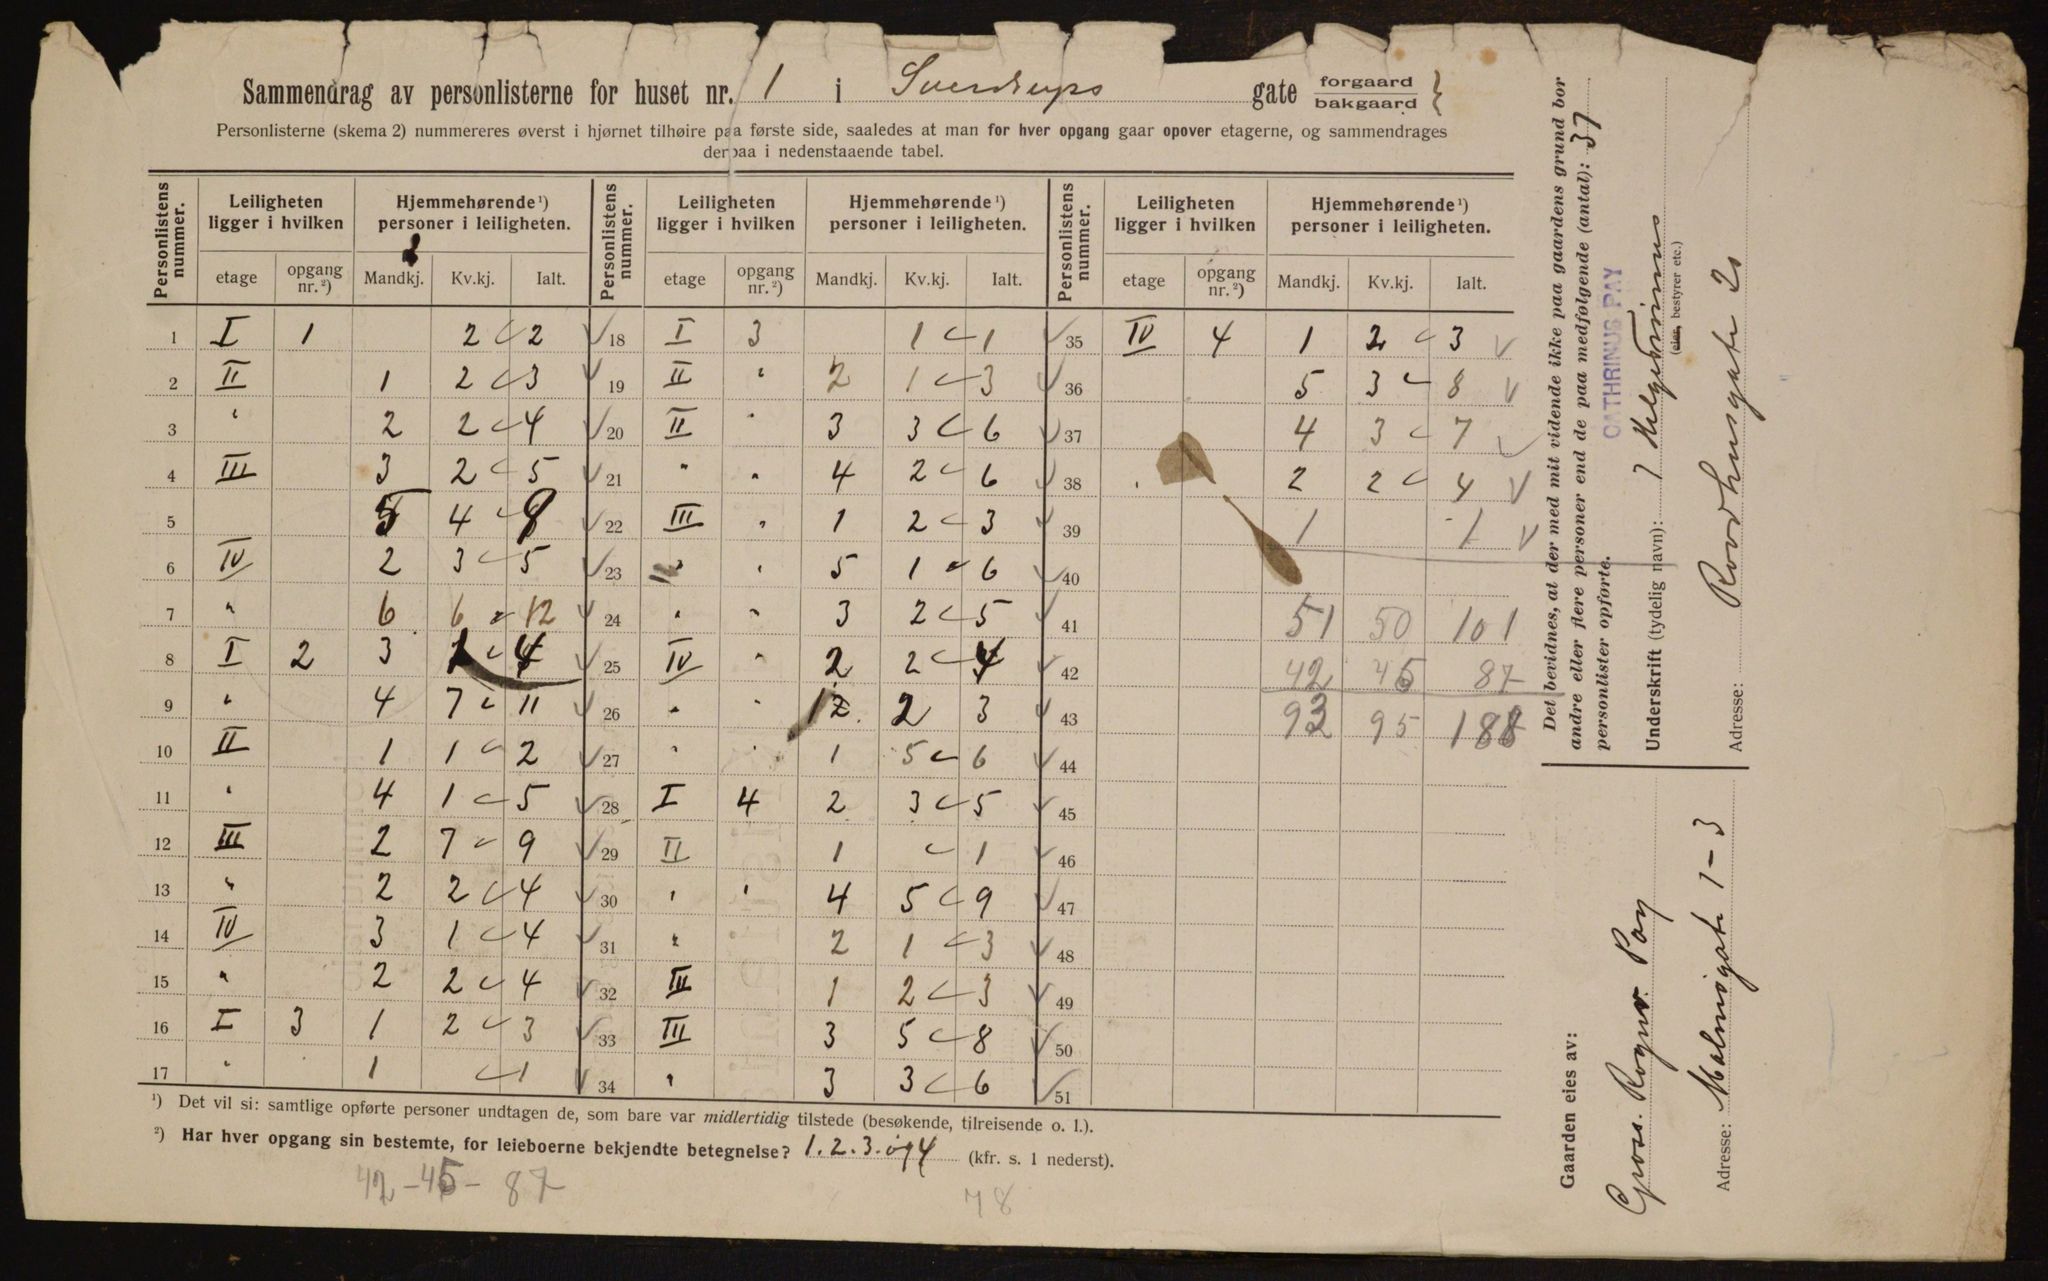 Sammendrag av personlisterne for huset nr. 1 i Sverdrups gate forgaard bakgaard }
Personlisterne (skema 2) nummereres øverst i hjørnet tilhøire paa første side, saaledes at man for hver opgang gaar opover etagerne, og sammendrages
derpaa i nedenstaaende tabel.
Personlistens nummer. Leiligheten ligger i hvilken Hjemmehørende ¹) personer i leiligheten. Personlistens nummer. Leiligheten ligger i hvilken Hjemmehørende ¹) personer i leiligheten. Personlistens nummer. Leiligheten ligger i hvilken Hjemmehørende ¹) personer i leiligheten.
etage opgang nr. ²) Mandkj. Kv.kj. Ialt. etage opgang nr. ²) Mandkj. Kv.kj. Ialt. etage opgang nr. ²) Mandkj. Kv.kj. Ialt.
1 I 1 2 2 18 I 3 1 1 35 IV 4 1 2 3
2 II 1 2 3 19 II " 2 1 3 36 5 3 8
3 " 2 2 4 20 II " 3 3 6 37 4 3 7
4 III 3 2 5 21 " " 4 2 6 38 2 2 4
5 4 22 III " 1 2 3 39 1 1
6 IV 2 3 5 23 " " 5 1 6 40
7 " 6 6 12 24 " " 3 2 5 41 51 50 101
8 I 2 3 1 4 25 IV " 2 2 4 42 42 45 87
9 " 4 7 11 26 " " 1 2 3 43 93 95 188
10 II 1 1 2 27 " " 1 5 6 44
11 " 4 1 5 28 I 4 2 3 5 45
12 III 2 7 9 29 II 1 1 46
13 " 2 2 4 30 " " 4 5 9 47
14 IV 3 1 4 31 " 2 1 3 48
15 " 2 2 4 32 III 1 2 3 49
16 I 3 1 2 3 33 III 3 5 8 50
17 " 1 1 34 " 3 3 6 51
¹) Det vil si: samtlige opførte personer undtagen de, som bare var midlertidig tilstede (besøkende, tilreisende o. l.).
²) Har hver opgang sin bestemte, for leieboerne bekjendte betegnelse? 1. 2. 3. og 4 (kfr. s. 1 nederst).
42 - 45 - 87
78
Det bevidnes, at der med mit vidende ikke paa gaardens grund bor
andre eller flere personer end de paa medfølgende (antal): 37
personlister opførte.
CATHRINUS PAY
Underskrift (tydelig navn):
(eier, bestyrer etc.)
Adresse: Raadhusgate 20
Gaarden eies av:
Gross. Ragnv. Pay
Adresse: Malmøgate 1-3